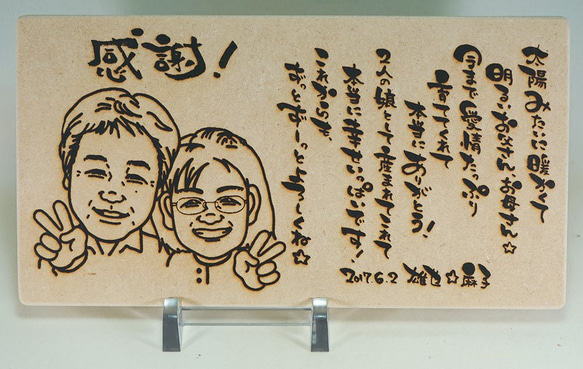 感謝!
太陽みたいに暖かくて
明るいお父さん、お母さん☆
今まで愛情たっぷり
育ててくれて
本当にありがとう!
2人の娘として産まれてこれて
本当に幸せいっぱいです!
これからも、
ずっとずーっとよろしくね☆
2017.6.2 雄也☆麻子